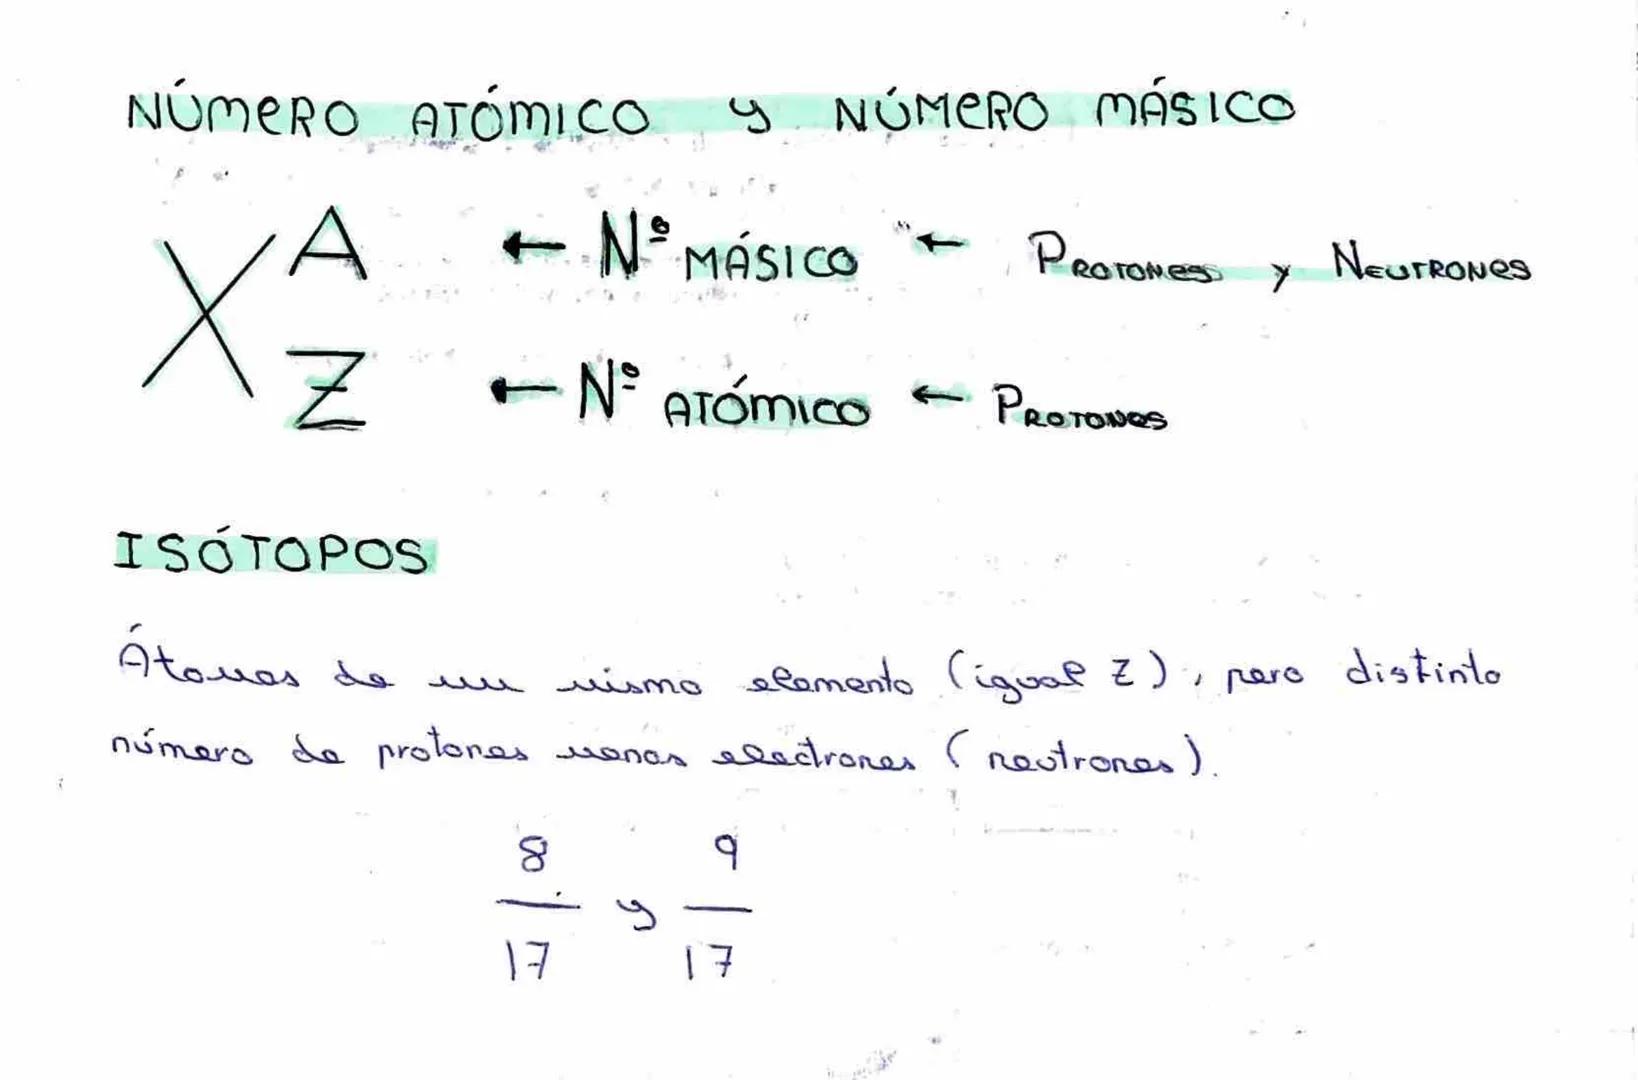 NÚMERO ATÓMICO y NÚMERO MÁSICO
X A ← Nº MÁSICO ← PROTONES y NEUTRONES
Z ← Nº ATÓMICO ← PROTONES
ISÓTOPOS
Átomos de un mismo elemento (igual Z), pero distinto
número de protones menos electrones (neutrones).
8 y 9
17 17